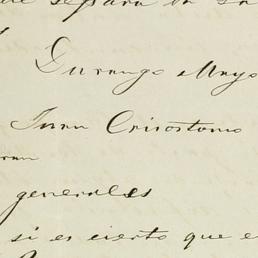 Durango Mayo
Juan Crisostomo
generales
si es cierto que e